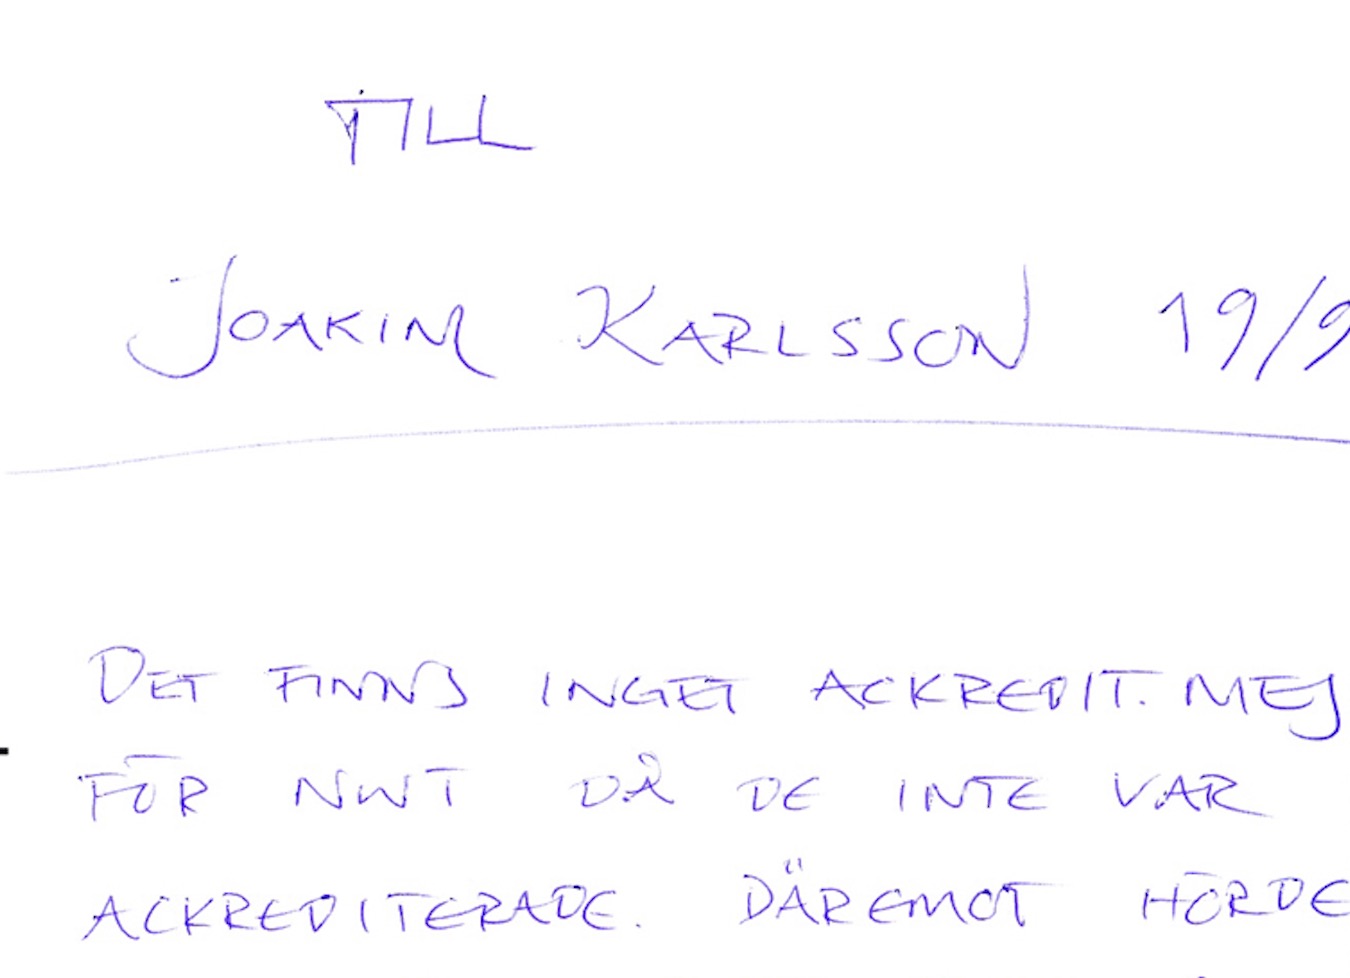 TILL
JOAKIM KARLSSON 19/9
DET FINNS INGET ACKREDIT. MEJ
FÖR NWT DÅ DE INTE VAR
ACKREDITERADE. DÄREMOT HÖRDE